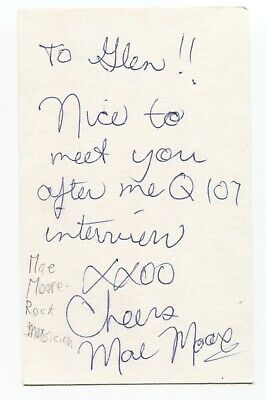 To Glen!!
Nice to
meet you
after me Q107
interview
XXOO
Cheers
Mae Moore
Mae
Moore-
Rock
Musician